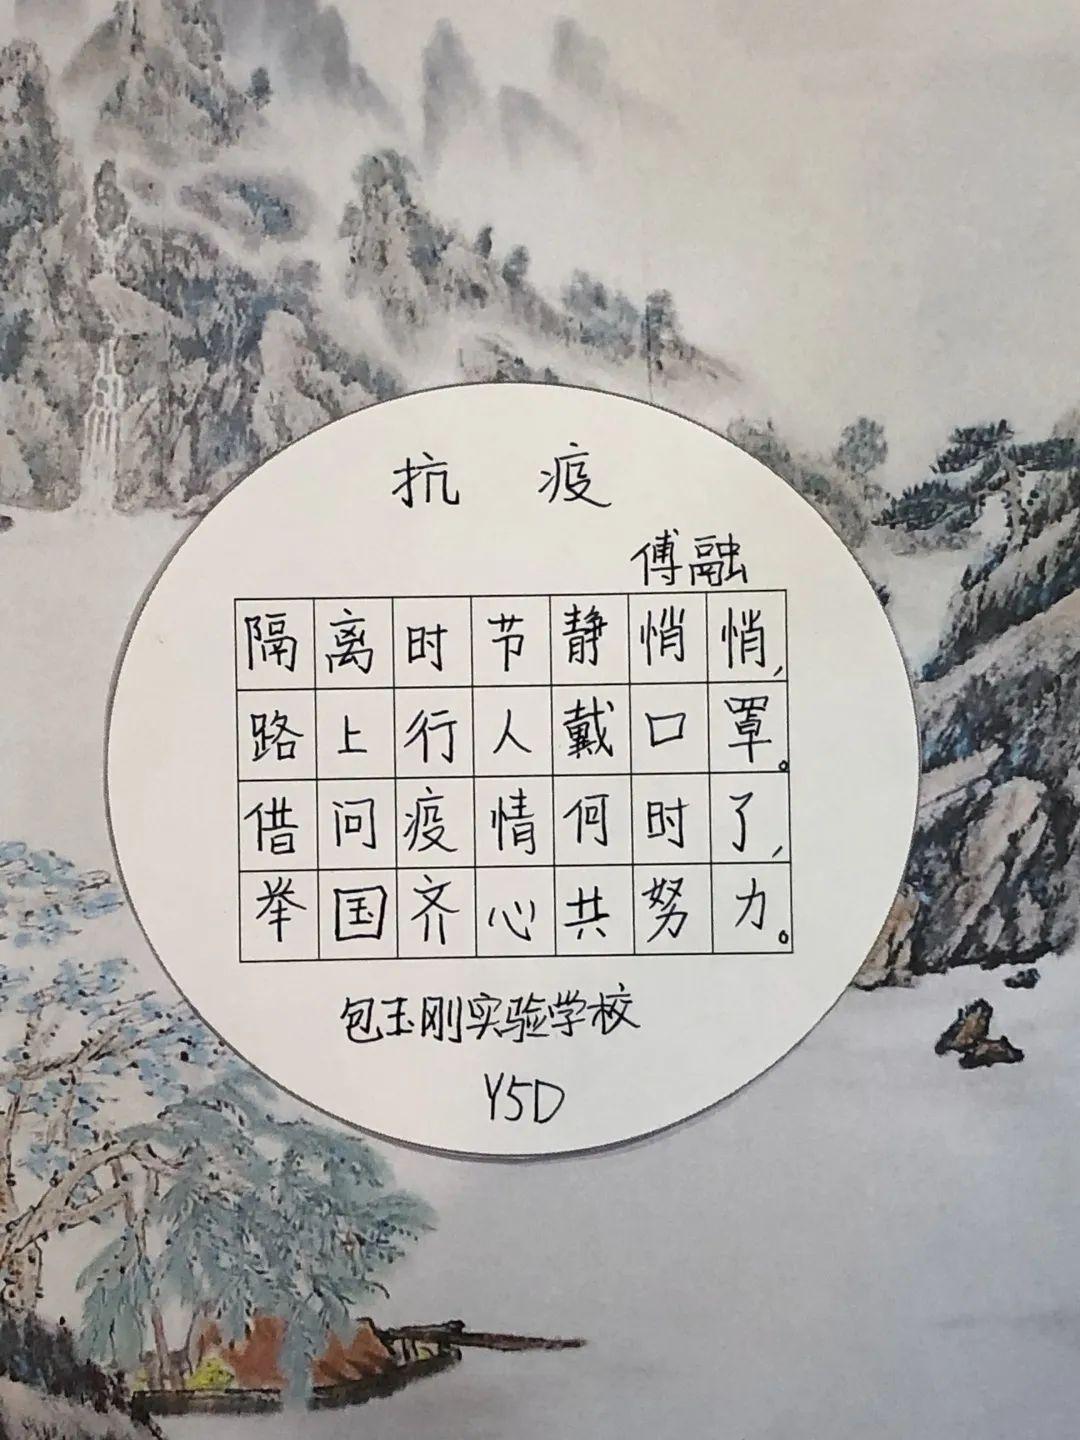 抗 疫
傅融
隔离时节静悄悄,
路上行人戴口罩。
借问疫情何时了,
举国齐心共努力。
包玉刚实验学校
Y5D